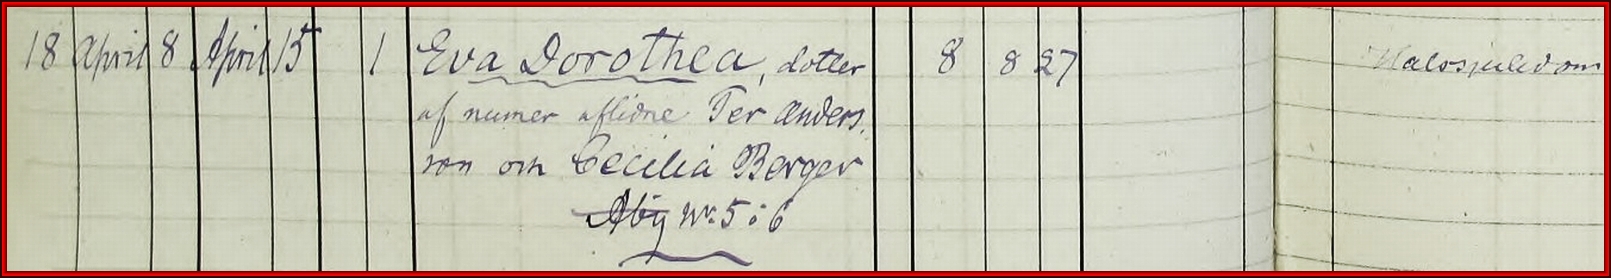 18 April 8 April 15 1 Eva Dorothea, dotter 8 8 27 Halssjukdom
af numer aflidne Per Anders-
son och Cecilia Berger
Åby No: 5 : 6